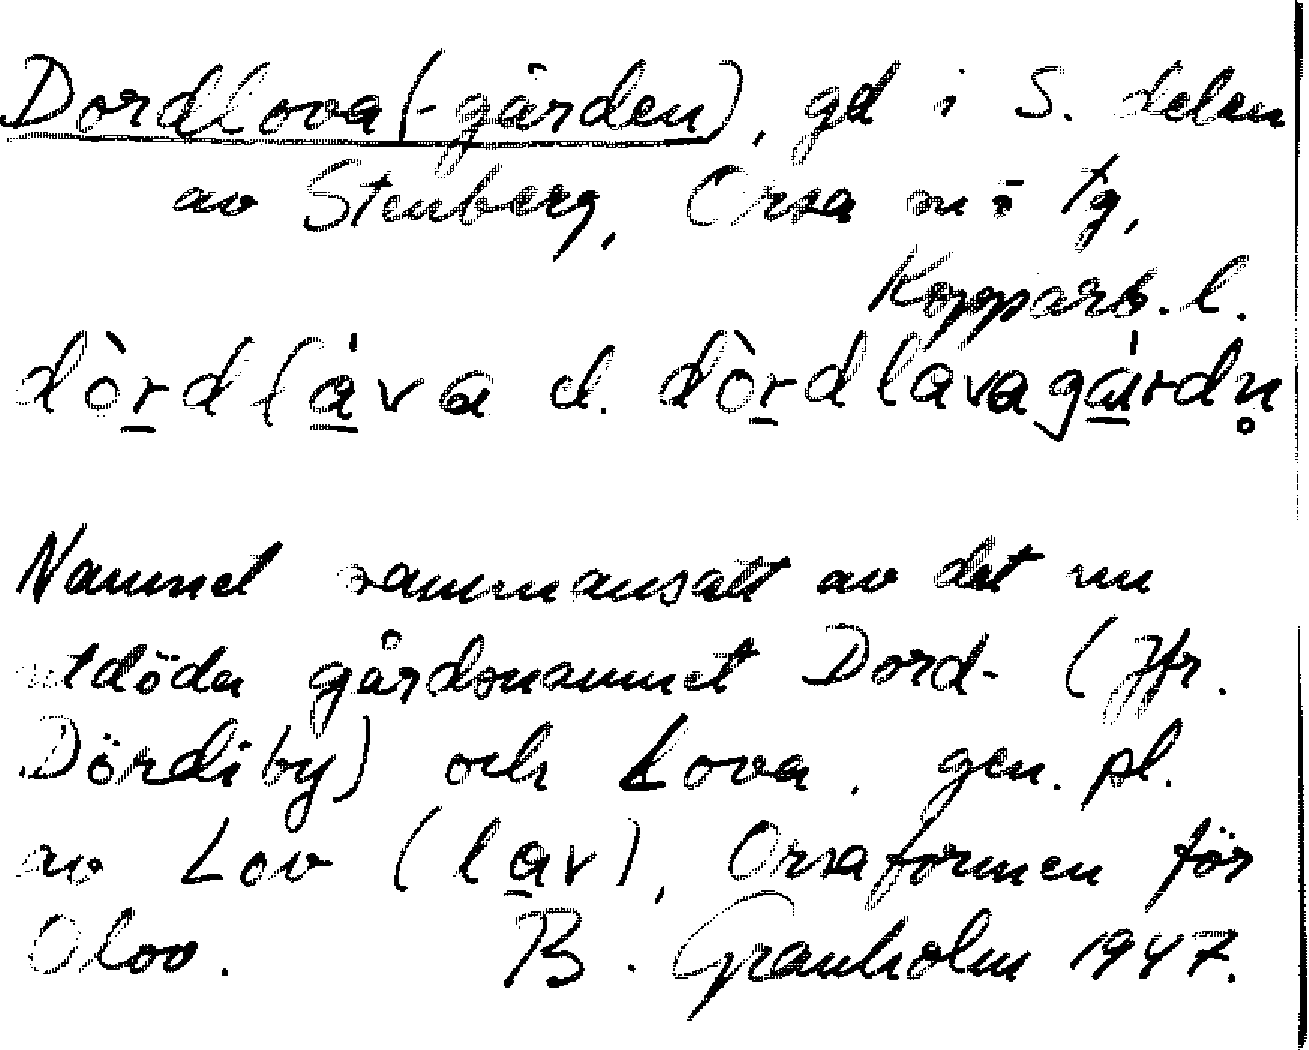 DordLova(-gården), gd i S. delen
av Stenberg, Orsa sn o tg,
Kopparb. l.
dòrdláva el. dòrdlavagárdn̥
Namnet sammansatt av det nu
utdöda gårdsnamnet Dord- (Jfr.
Dördiby) och Lova. gen. pl.
av Lov (lav), Orsaformen för
Olov. B. Granholm 1947.